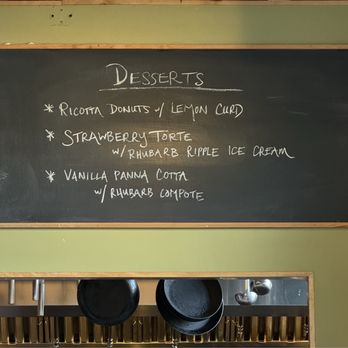 DESSERTS
* RICOTTA DONUTS w/ LEMON CURD
* STRAWBERRY TORTE
w/ RHUBARB RIPPLE ICE CREAM
* VANILLA PANNA COTTA
w/ RHUBARB COMPOTE